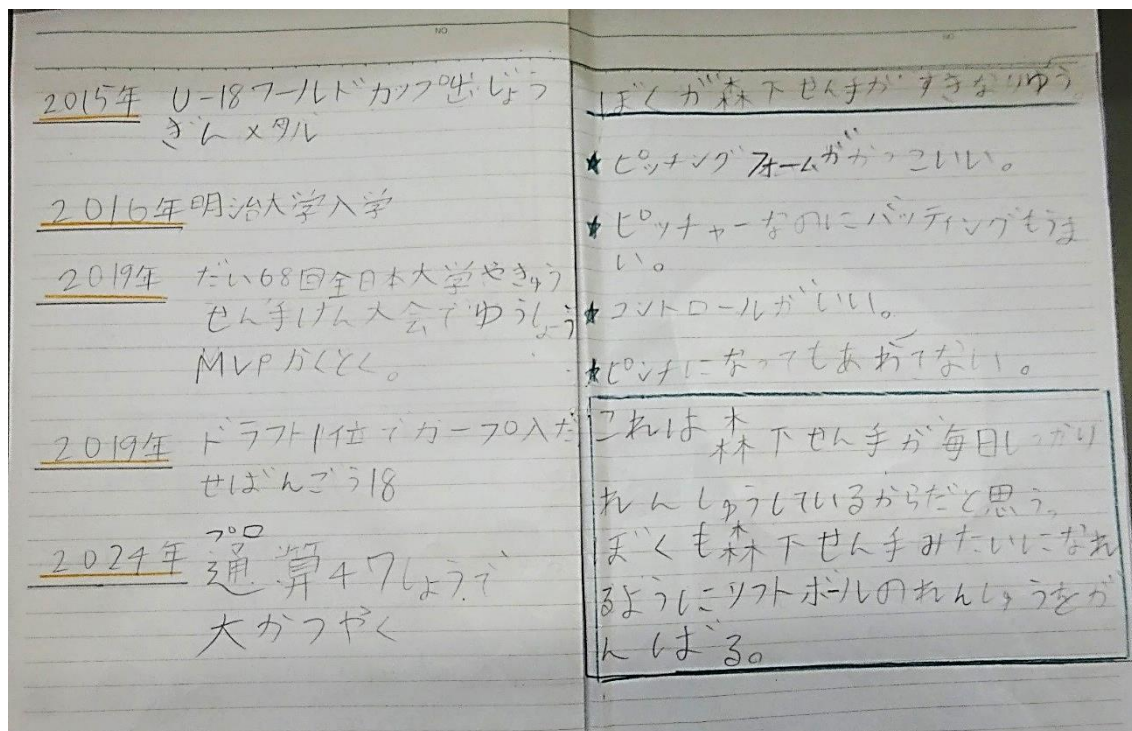 2015年 U-18ワールドカップ出じょう
ぎんメダル
2016年 明治大学入学
2019年 だい68回全日本大学やきゅう
せん手けん大会でゆうしょう
MVPかくとく。
2019年 ドラフト1位でカープ入だ
せばんごう18
プロ
2024年 通算47しょうで
大かつやく
ぼくが森下せん手がすきなりゆう
★ピッチングフォームがかっこいい。
★ピッチャーなのにバッティングもうま
い。
★コントロールがいい。
★ピンチになってもあわてない。
これは森下せん手が毎日しっかり
れんしゅうしているからだと思う。
ぼくも森下せん手みたいになれ
るようにソフトボールのれんしゅうをが
んばる。